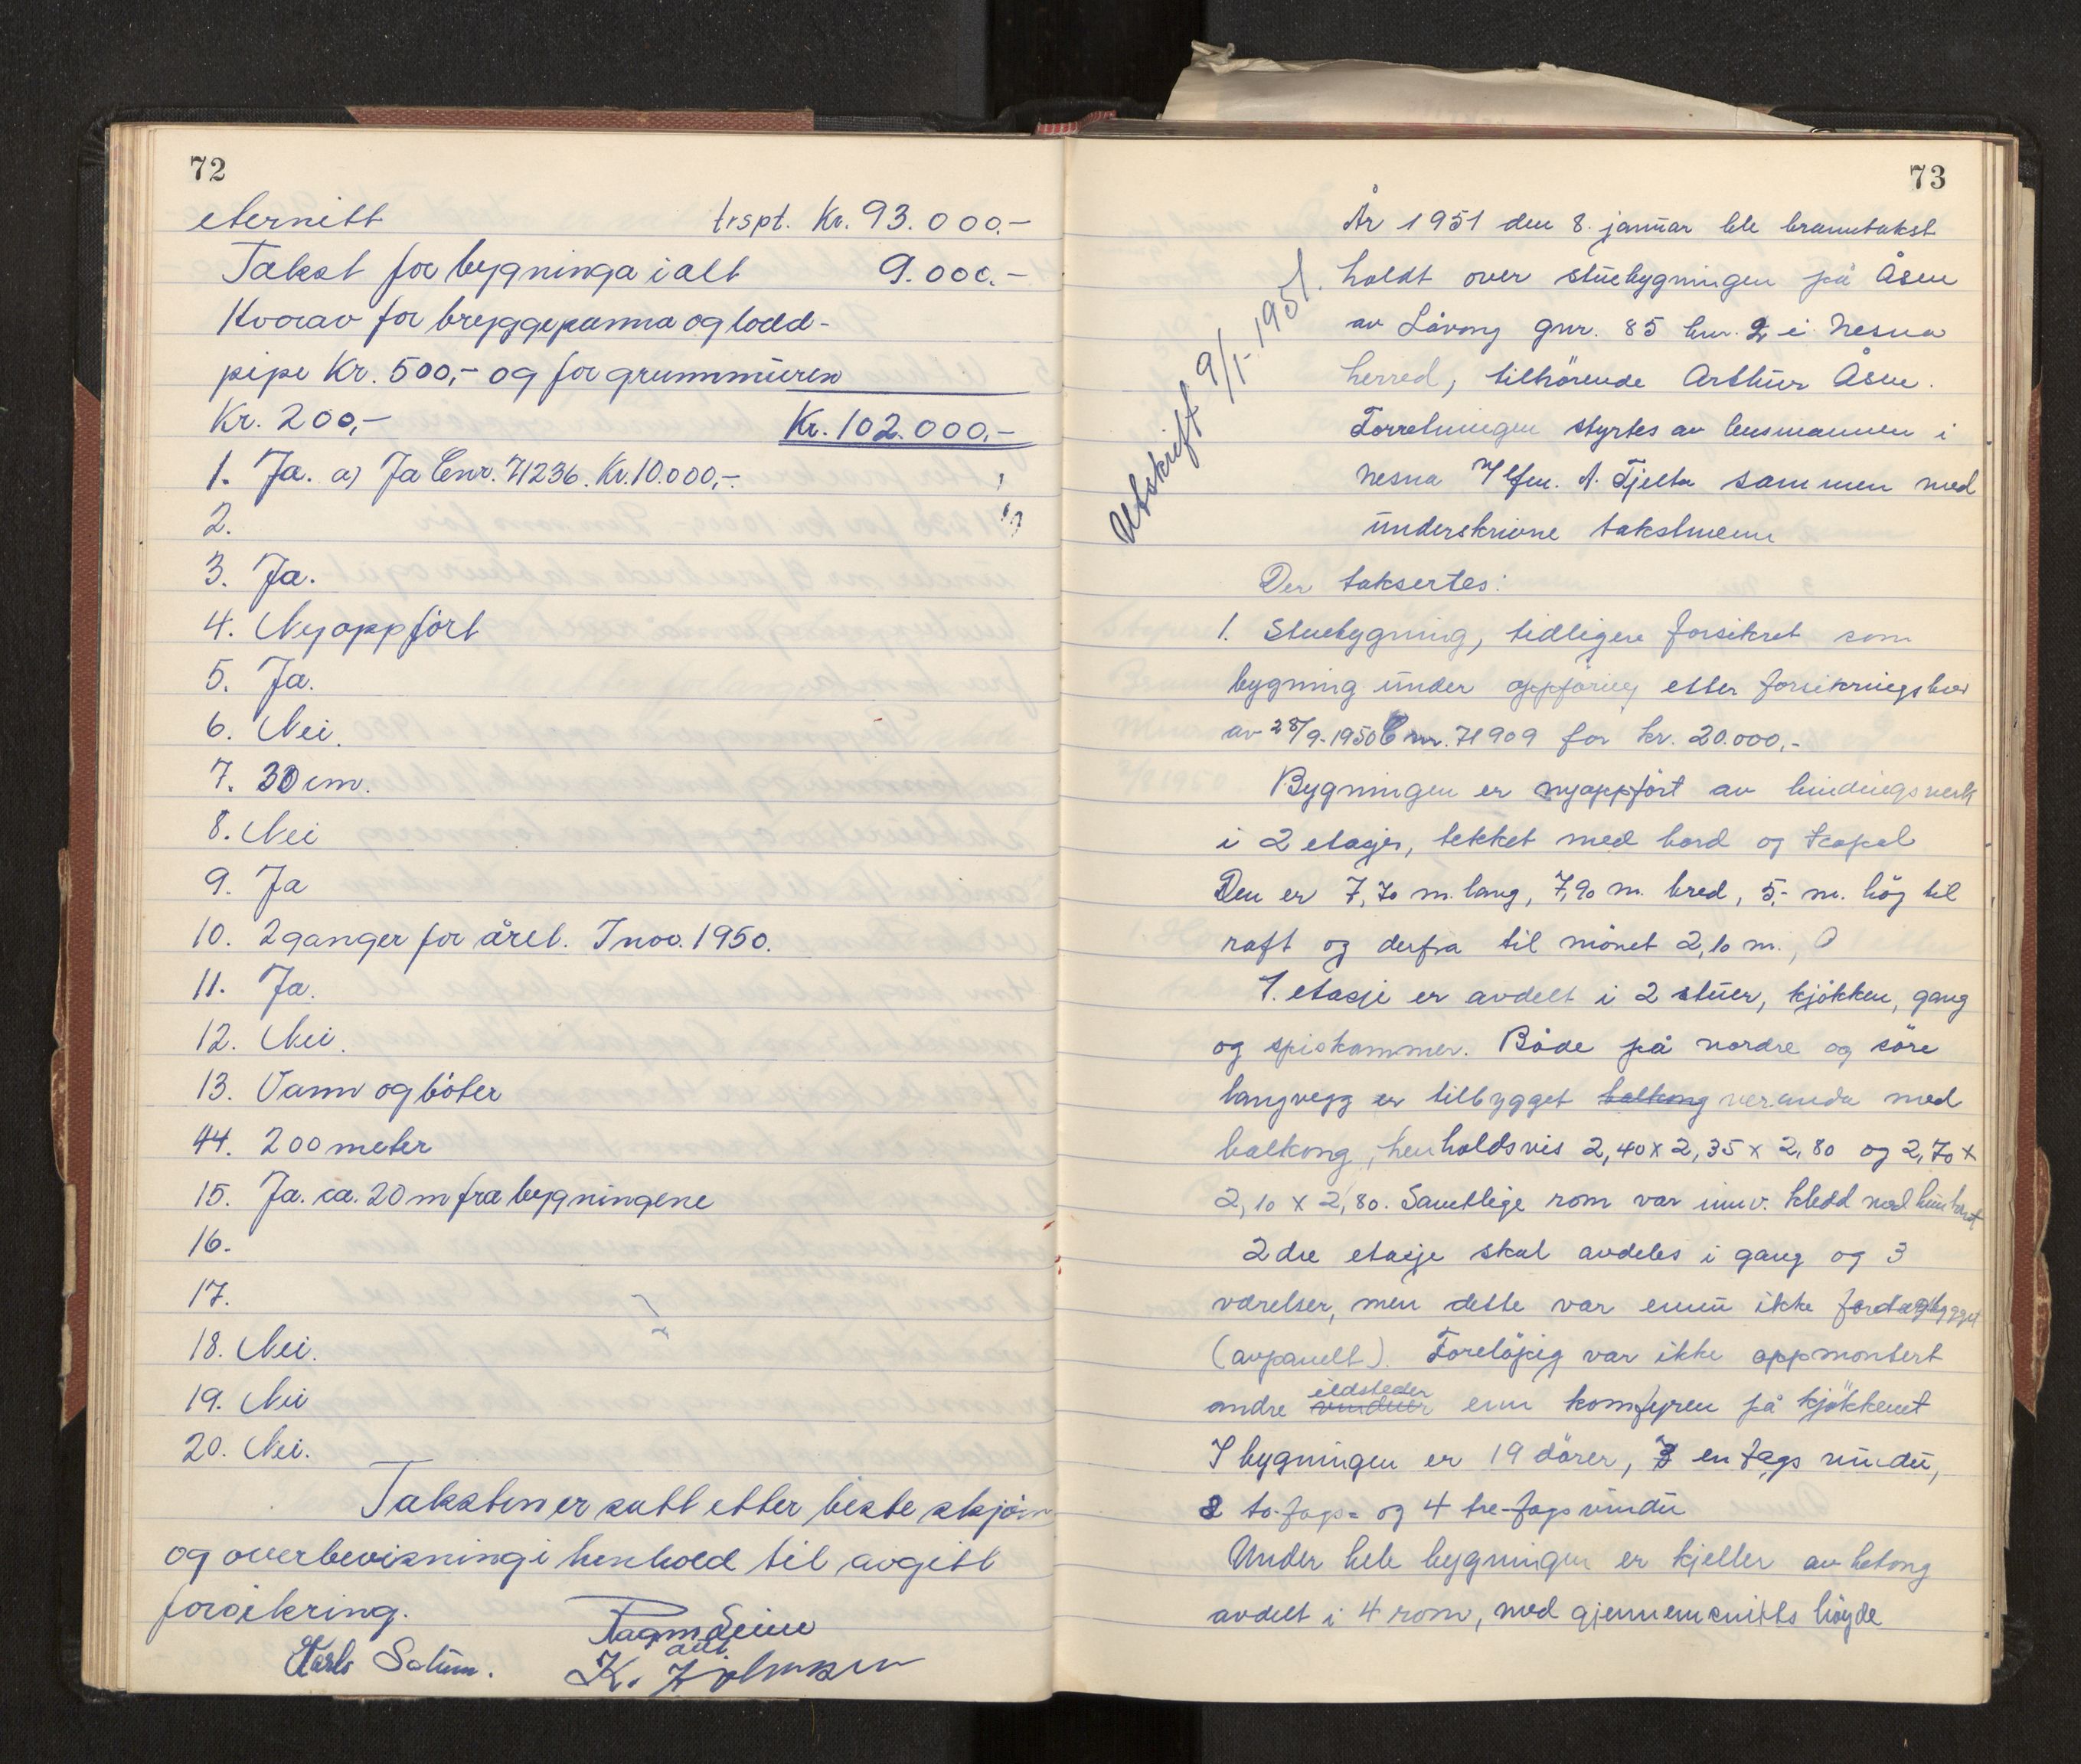 72
eternitt trspt. Kr. 93.000.-
Takst for bygninga i alt 9.000.-
Hvorav for bryggepanna og lodd-
pipe Kr. 500,- og for grunnmüren
Kr. 200,- Kr. 102.000,-
1. Ja. a) Ja Enr. 71236. Kr. 10.000,-.
2.
3. Ja.
4. Nyoppfört
5. Ja.
6. Nei.
7. 30 cm.
8. Nei
9. Ja
10. 2 ganger for året. I nov. 1950.
11. Ja.
12. Nei.
13. Vann og böter
14. 200 meter
15. Ja. ca. 20 m fra bygningene
16.
17.
18. Nei.
19. Nei
20. Nei.
Taksten er satt etter beste skjönn
og overbevisning i henhold til avgitt
forsikring.
Ragm Seine
Karls Solum. K. Johnsen
73
Utskrift 9/1-1951.
År 1951 den 8. januar ble branntakst
holdt over stuebygningen på Åsen
av Låvong gnr. 85 bnr. 2 i Nesna
herred, tilhörende Arthur Åsen.
Forretningen styrtes av lensmannen i
Nesna v/ lfm. A. Fjelta sammen med
ünderskrivne takstmenn
Der taksertes:
1. Stuebygning, tidligere forsikret som
bygning ünder oppföring etter forsikringsbev
av 28/9-1950 E nr. 71909 for kr. 20.000,-
Bygningen er nyoppfört av bindingsverk
i 2 etasjer, tekket med bord og
Den er 7,70 m. lang, 7,90 m. bred, 5,- m. hög til
raft og derfra til mönet 2,10 m.,
1. etasje er avdelt i 2 stüer, kjökken, gang
og spiskammer. Både på nordre og söre
langvegg er tilbygget balkong veranda med
balkong, henholdsvis 2,40 x 2,35 x 2,80 og 2,70 x
2,10 x 2,80. Samtlige rom var innv. kledd med
2dre etasje skal avdeles i gang og 3
værelser, men dette var ennü ikke
(avpanelt). Foreløpig var ikke oppmontert
andre vinduer ildsteder enn komfyren på kjökkenet
I bygningen er 19 dörer, 7 en fags vindü,
8 to-fags- og 4 tre-fags vindü
Under hele bygningen er kjeller av betong
avdelt i 4 rom, med gjennemsnitts höyde